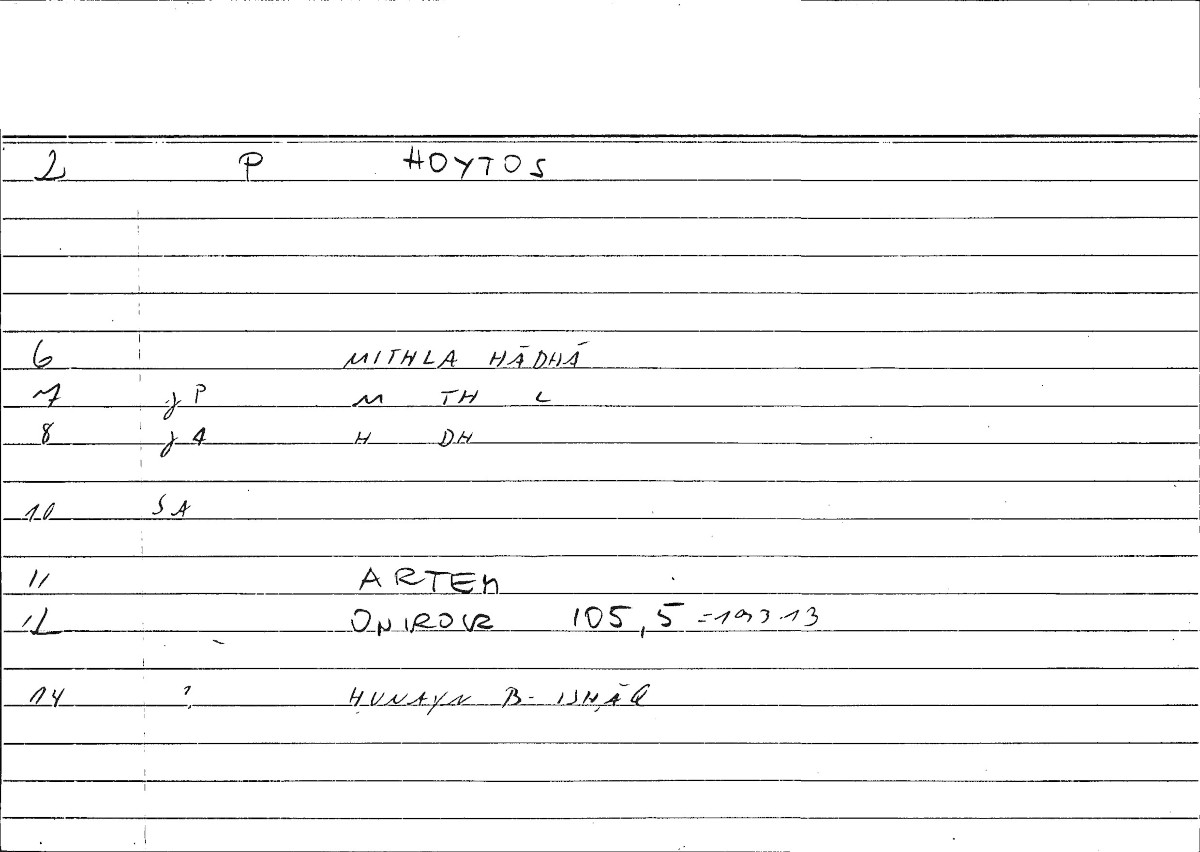 2 P HOYTOS
6 MITHLA HĀDHĀ
7 jP M TH L
8 j4 H DH
10 SA
11 ARTEM
12 ONIROCR 105,5 =193.13
14 ? HUNAYN B- ISḤĀQ